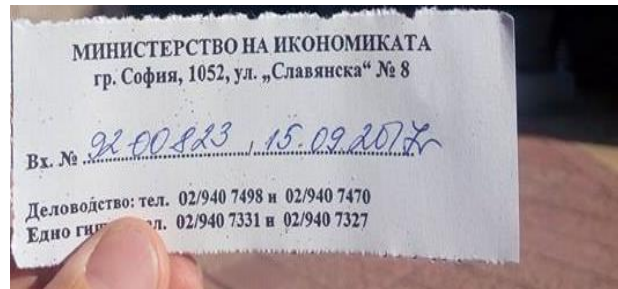 МИНИСТЕРСТВО НА ИКОНОМИКАТА
гр. София, 1052, ул. „Славянска“ № 8
Вх. № 92-00-823, 15.09.2017г
Деловодство: тел. 02/940 7498 и 02/940 7470
Едно 02/940 7331 и 02/940 7327